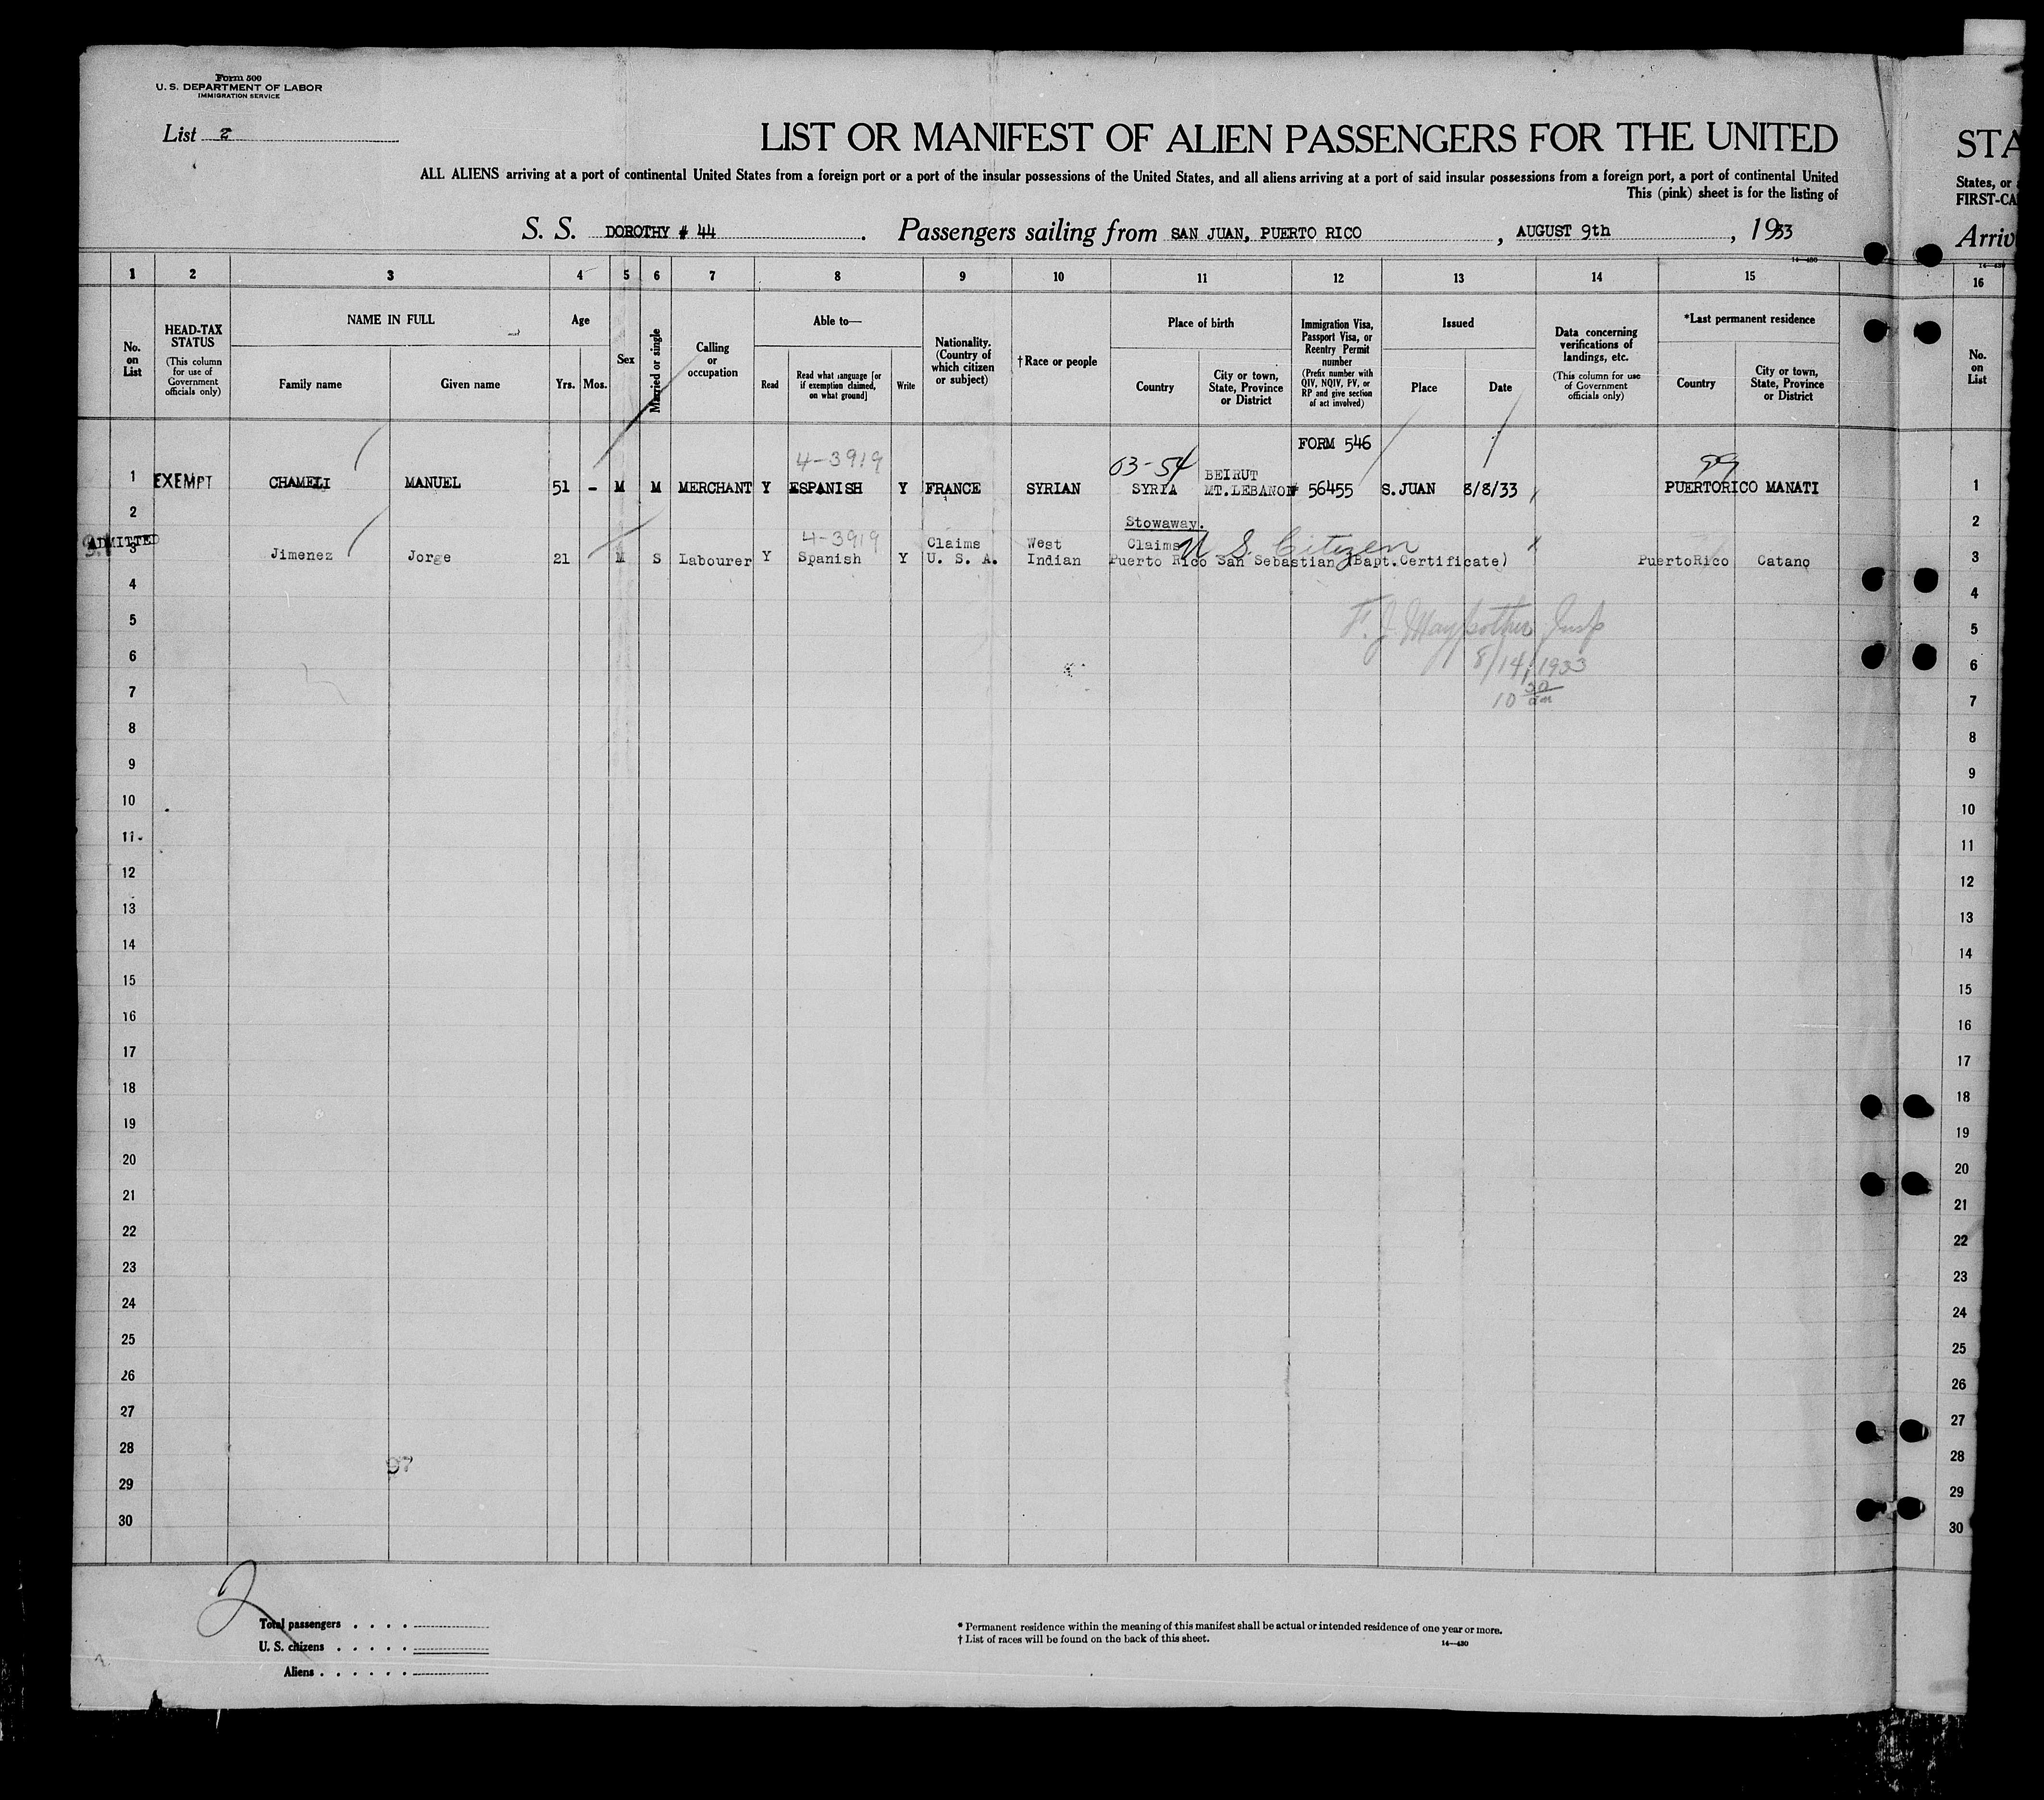 Form 500
U. S. DEPARTMENT OF LABOR
IMMIGRATION SERVICE
List 2
LIST OR MANIFEST OF ALIEN PASSENGERS FOR THE UNITED
STA
ALL ALIENS arriving at a port of continental United States from a foreign port or a port of the insular possessions of the United States, and all aliens arriving at a port of said insular possessions from a foreign port, a port of continental United
States, or
This (pink) sheet is for the listing of
FIRST-CA
S. S. DOROTHY # 44. Passengers sailing from SAN JUAN, PUERTO RICO, AUGUST 9th, 1933
Arriv
14—430
14—430
1 2 3 4 5 6 7 8 9 10 11 12 13 14 15 16
No. on List
HEAD-TAX STATUS
(This column for use of Government officials only)
NAME IN FULL
Family name
Given name
Age
Yrs.
Mos.
Sex
Married or single
Calling or occupation
Able to—
Read
Read what language [or if exemption claimed, on what ground]
Write
Nationality. (Country of which citizen or subject)
†Race or people
Place of birth
Country
City or town, State, Province or District
Immigration Visa, Passport Visa, or Reentry Permit number
(Prefix number with QIV, NQIV, PV, or RP and give section of act involved)
Issued
Place
Date
Data concerning verifications of landings, etc.
(This column for use of Government officials only)
*Last permanent residence
Country
City or town, State, Province or District
No. on List
FORM 546
4-3919
03-54
99
BEIRUT
1 EXEMPT CHAMELI MANUEL 51 - M M MERCHANT Y ESPANISH Y FRANCE SYRIAN SYRIA MT.LEBANON # 56455 S.JUAN 8/8/33 PUERTORICO MANATI 1
2 Stowaway. 2
ADMITTED
4-3919 Claims West Claims U. S. Citizen
3 Jimenez Jorge 21 M S Labourer Y Spanish Y U. S. A. Indian Puerto Rico San Sebastian (Bapt.Certificate) PuertoRico Catano 3
4 4
5 5
F. J. Maypother Insp
6 6
8/14/1933
7 7
10 30 am
8 8
9 9
10 10
11 11
12 12
13 13
14 14
15 15
16 16
17 17
18 18
19 19
20 20
21 21
22 22
23 23
24 24
25 25
26 26
27 27
28 28
97
29 29
30 30
2
Total passengers . . . .
U. S. citizens . . . . .
Aliens . . . . . .
* Permanent residence within the meaning of this manifest shall be actual or intended residence of one year or more.
† List of races will be found on the back of this sheet.
14—430